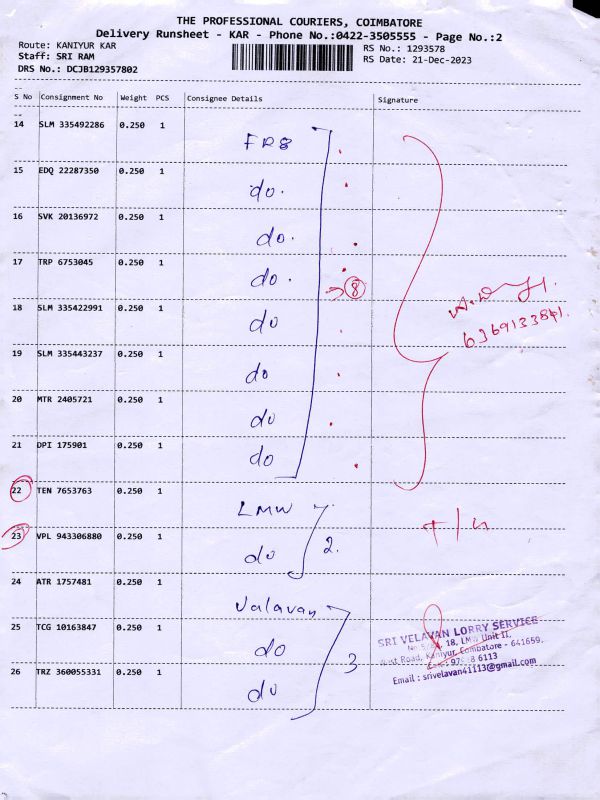 THE PROFESSIONAL COURIERS, COIMBATORE
Delivery Runsheet - KAR - Phone No.:0422-3505555 - Page No.:2
Route: KANIYUR KAR
RS No.: 1293578
Staff: SRI RAM
RS Date: 21-Dec-2023
DRS No.: DCJB129357802
S No Consignment No Weight PCS Consignee Details Signature
14 SLM 335492286 0.250 1 FRS
15 EDQ 22287350 0.250 1 do.
16 SVK 20136972 0.250 1 do.
17 TRP 6753045 0.250 1 do. 8
18 SLM 335422991 0.250 1 do
6369133841.
19 SLM 335443237 0.250 1 do
20 MTR 2405721 0.250 1 do
21 DPI 175901 0.250 1 do
22 TEN 7653763 0.250 1 LMW
23 VPL 943306880 0.250 1 do 2.
24 ATR 1757481 0.250 1 Valavan
25 TCG 10163847 0.250 1 do
26 TRZ 360055331 0.250 1 do 3
SRI VELAVAN LORRY SERVICE
18, LMW Unit II,
Road, Kaniyur, Coimbatore - 641659.
6113
Email : srivelavan41113@gmail.com